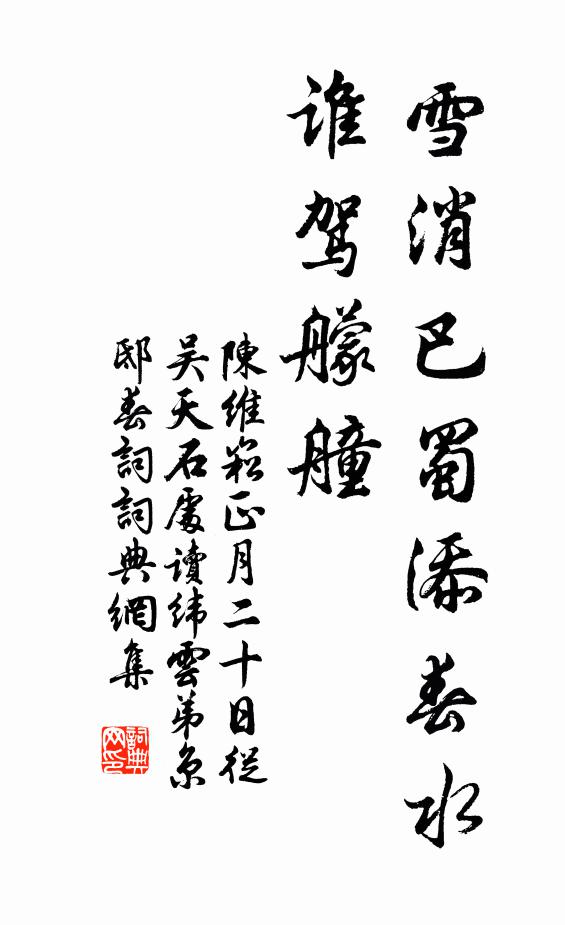 雪消巴蜀添春水
誰駕艨艟
陳維崧正月二十日從
吴天石處讀緯雲弟京
邸春詞詞典網集
詞典网印